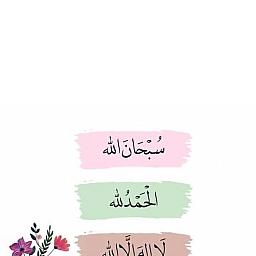 سُبْحَانَ الله
الْحَمْدُ لله
لَا إِلٰهَ إِلَّا الله